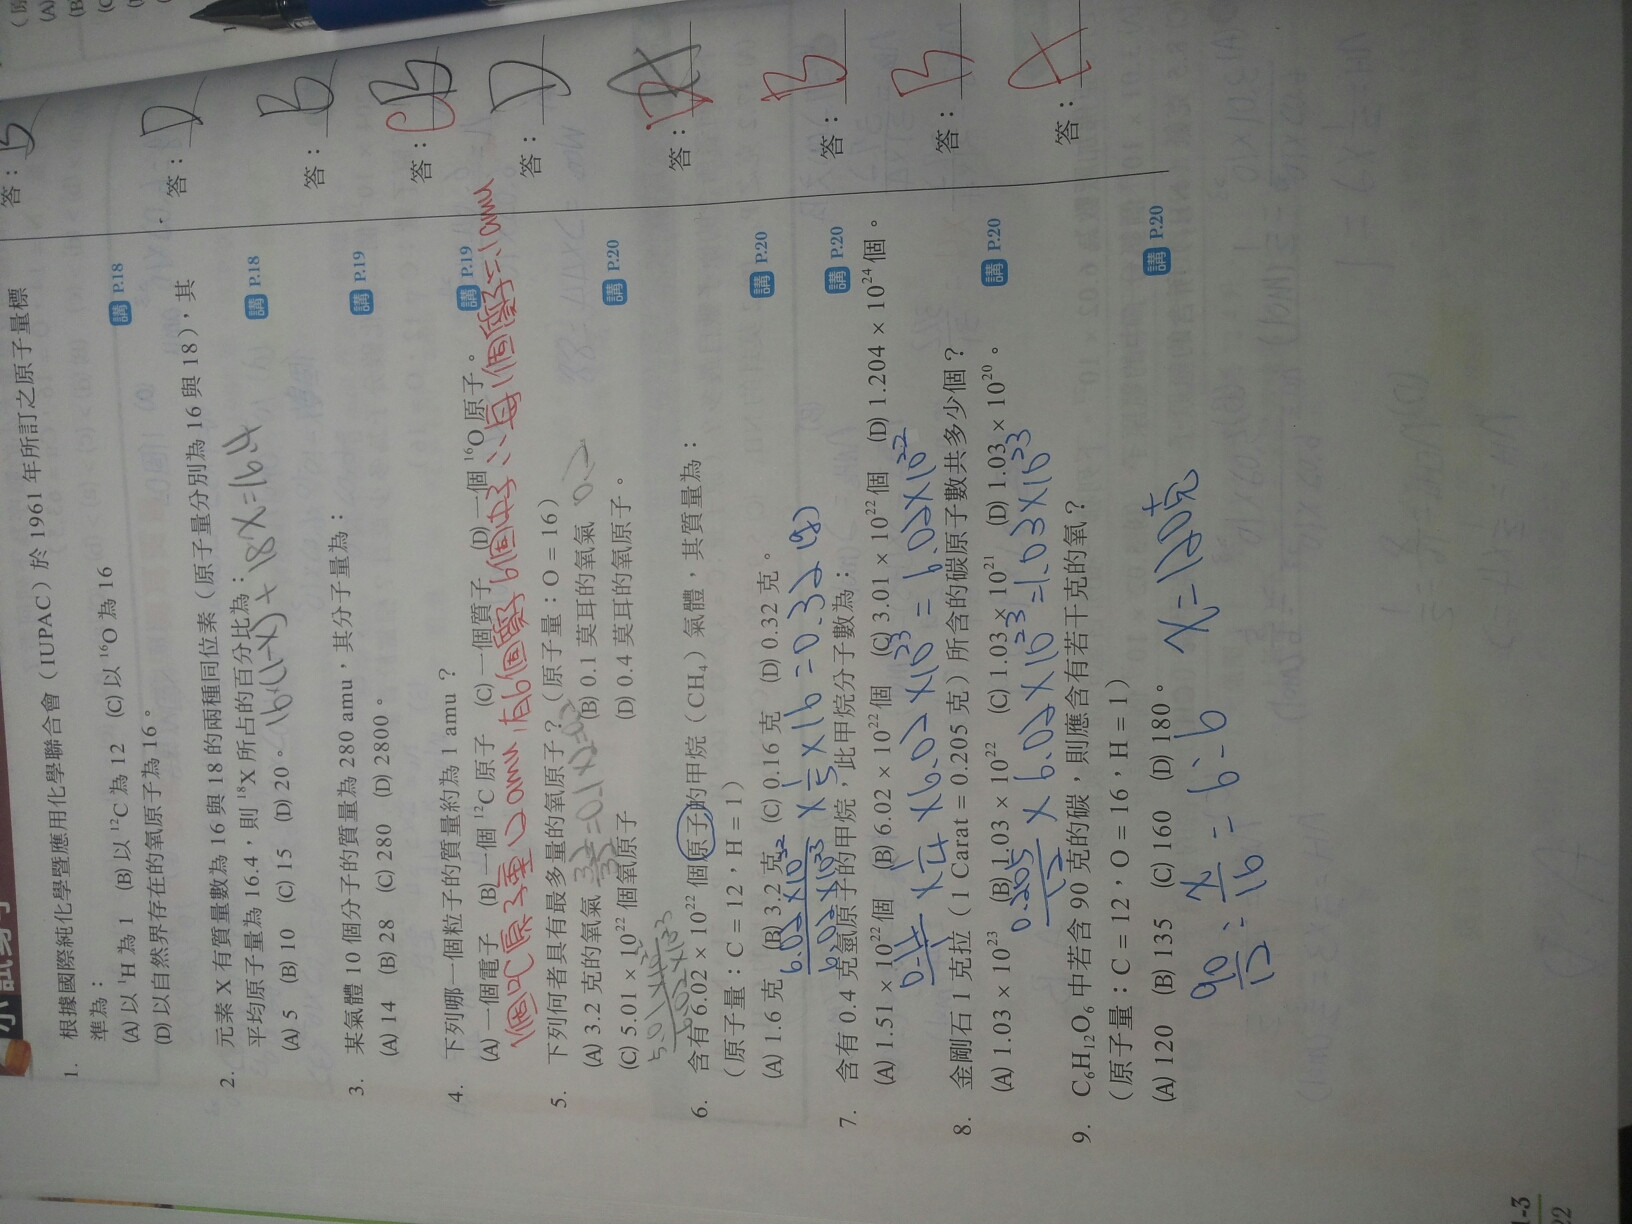 小試身手
1. 根據國際純化學暨應用化學聯合會（IUPAC）於 1961 年所訂之原子量標
準為：
(A) 以 ¹H 為 1 (B) 以 ¹²C 為 12 (C) 以 ¹⁶O 為 16
(D) 以自然界存在的氧原子為 16。
講 P.18
答：B
2. 元素 X 有質量數為 16 與 18 的兩種同位素（原子量分別為 16 與 18），其
平均原子量為 16.4，則 ¹⁸X 所占的百分比為：
(A) 5 (B) 10 (C) 15 (D) 20。
16(1-X) + 18X = 16.4
講 P.18
答：D
3. 某氣體 10 個分子的質量為 280 amu，其分子量為：
(A) 14 (B) 28 (C) 280 (D) 2800。
講 P.19
答：B
4. 下列哪一個粒子的質量約為 1 amu？
(A) 一個電子 (B) 一個 ¹²C 原子 (C) 一個質子 (D) 一個 ¹⁶O 原子。
講 P.19
答：C B
5. 下列何者具有最多量的氧原子？（原子量：O = 16）
(A) 3.2 克的氧氣 (B) 0.1 莫耳的氧氣 0.2
(C) 5.01 × 10²² 個氧原子 (D) 0.4 莫耳的氧原子。
講 P.20
答：D
6. 含有 6.02 × 10²² 個原子的甲烷（CH₄）氣體，其質量為：
（原子量：C = 12，H = 1）
(A) 1.6 克 (B) 3.2 克 (C) 0.16 克 (D) 0.32 克。
6.02×10²²
6.02×10²³ × 1/5 × 16 = 0.32 (g)
講 P.20
答：D A
7. 含有 0.4 克氫原子的甲烷，此甲烷分子數為：
(A) 1.51 × 10²² 個 (B) 6.02 × 10²² 個 (C) 3.01 × 10²² 個 (D) 1.204 × 10²⁴ 個。
× 1/4 × 6.02 × 10²³ = 6.02 × 10²²
講 P.20
答：B
8. 金剛石 1 克拉（1 Carat = 0.205 克）所含的碳原子數共多少個？
(A) 1.03 × 10²³ (B) 1.03 × 10²² (C) 1.03 × 10²¹ (D) 1.03 × 10²⁰。
0.205/12 × 6.02 × 10²³ = 1.03 × 10²³
講 P.20
答：B
9. C₆H₁₂O₆ 中若含 90 克的碳，則應含有若干克的氧？
（原子量：C = 12，O = 16，H = 1）
(A) 120 (B) 135 (C) 160 (D) 180。
90/12 : X/16 = 6 : 6 X = 120克
講 P.20
答：A
1-3
22